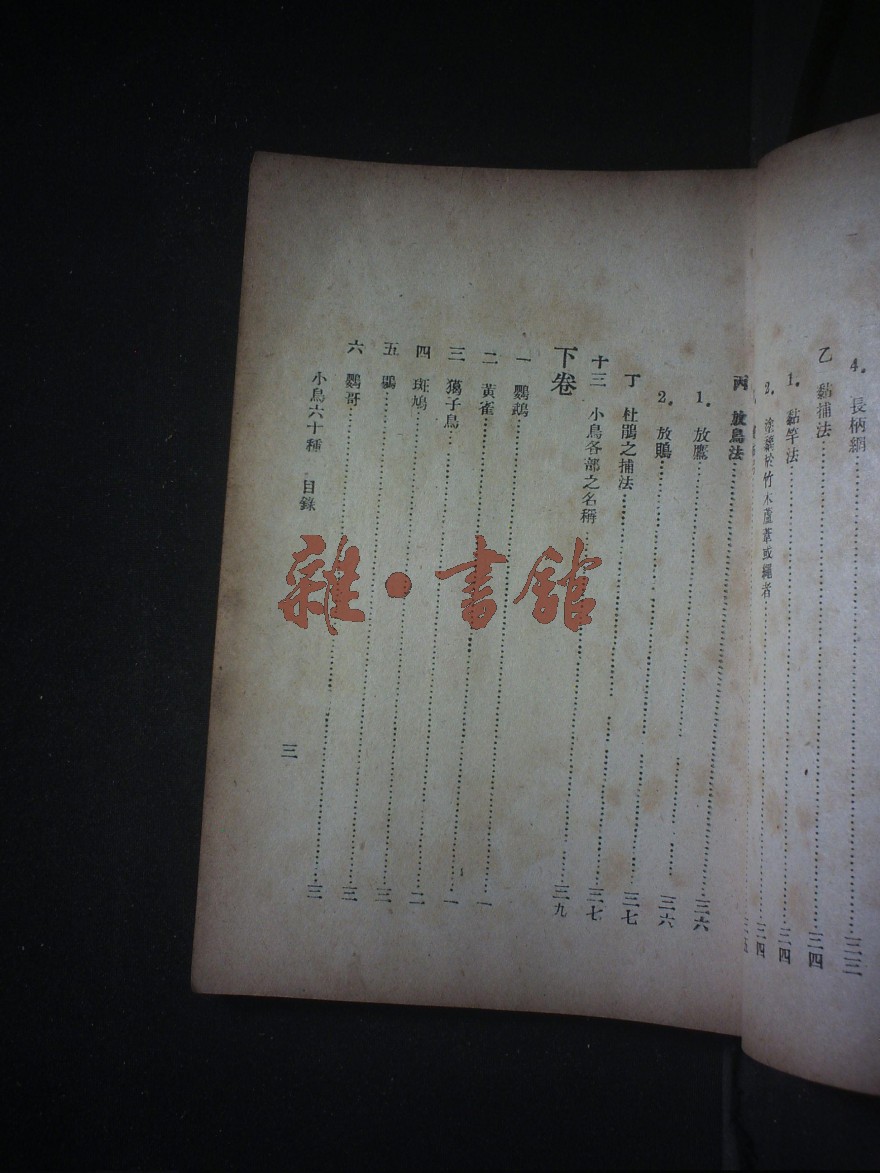 4. 長柄網……三三
乙 黏捕法……三四
1. 黏竿法……三四
2. 塗黐於竹木蘆葦或繩者……三四
三五
丙 放鳥法……三六
1. 放鷹……三六
2. 放鵰……三七
丁 杜鵑之捕法……三七
十三 小鳥各部之名稱……三九
下卷
一 鸚鵡……一
二 黃雀……一
三 蒭子鳥……二
四 斑鳩……三
五 鷃……三
六 鸚哥……三
小鳥六十種 目錄
三
雜·書館